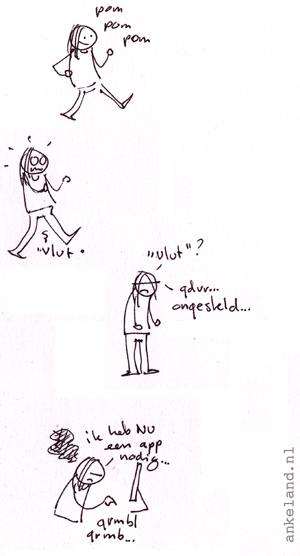 pom
pom
pom
"vlut"
"vlut"?
gdvr...
ongesteld...
ik heb NU
een app
nodig...
grmbl
grmb...
ankeland.nl